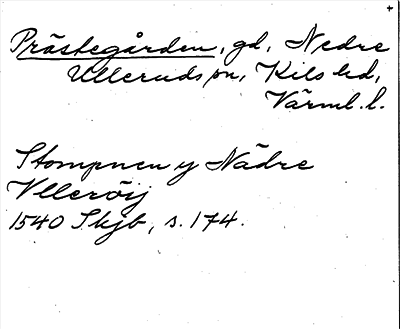 Prästegården, gd, Nedre
Ulleruds sn, Kils hd,
Värml. l.
Stompnen y Nädre
Vllerøij
1540 Skjb, s. 174.